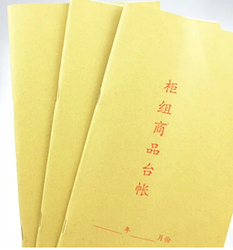 柜组商品台帐
____年____月份